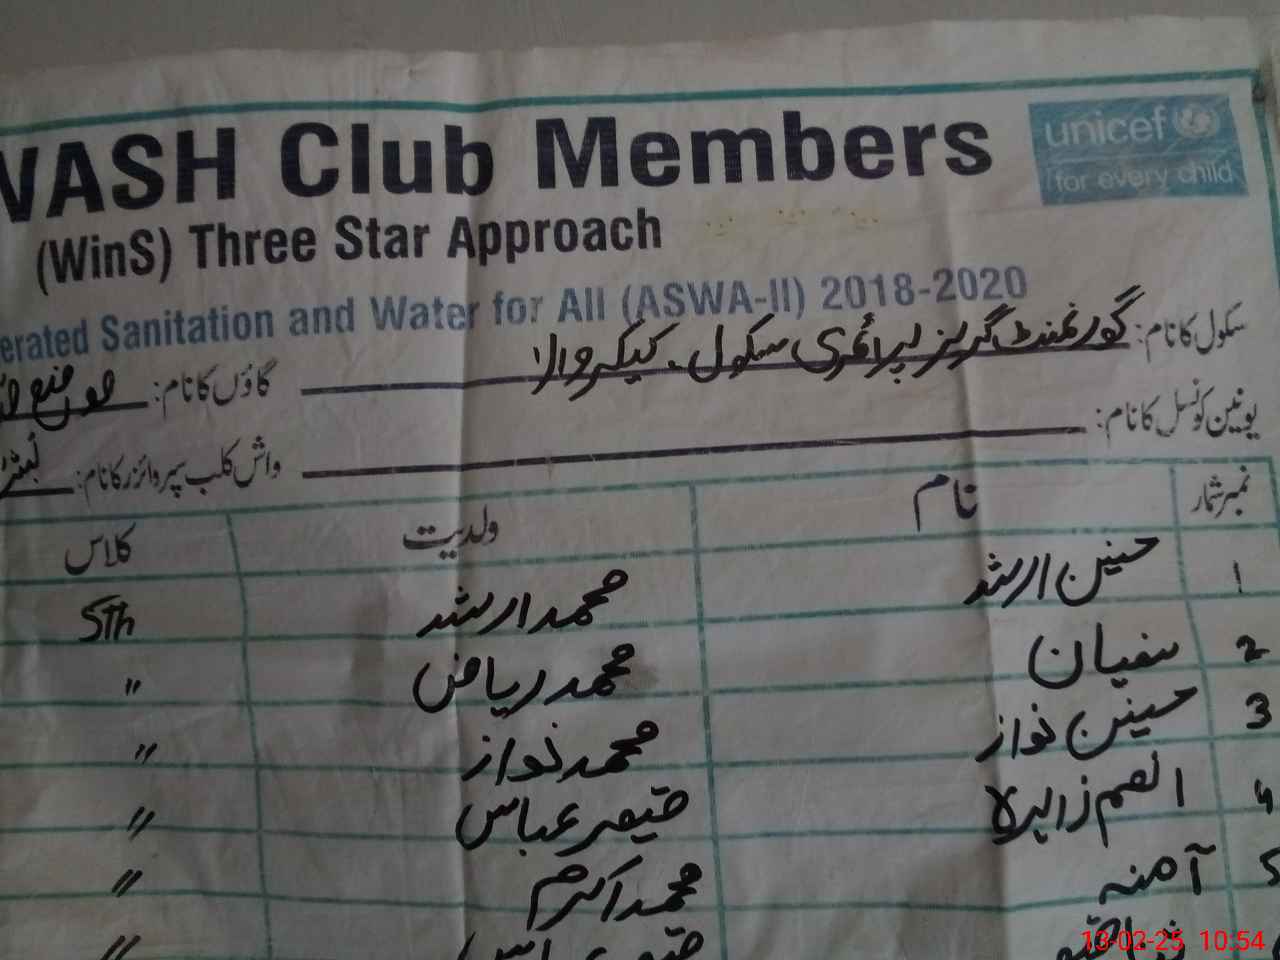 WASH Club Members
unicef
for every child
(WinS) Three Star Approach
erated Sanitation and Water for All (ASWA-II) 2018-2020
سکول کا نام: گورنمنٹ گرلز پرائمری سکول۔ کیکر والا گاؤں کا نام: موضع
یونین کونسل کا نام: واش کلب سپروائزر کا نام:
نمبر شمار نام ولدیت کلاس
1 حسنین ارشد محمد ارشد 5th
2 سفیان محمد ریاض "
3 حسنین نواز محمد نواز "
4 انعم زاہرہ قیصر عباس "
5 آمنہ محمد اکرم "
"
13-02-25 10:54